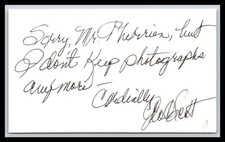 Sorry, Mr. Phevrien, but
I don't keep photographs
anymore —
Cordially,
Scott